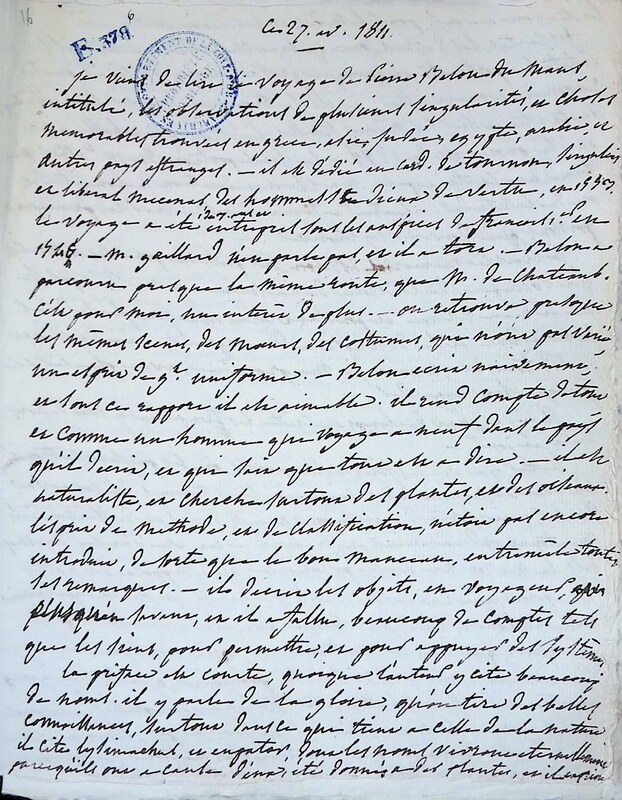 16
6
F. 378
Ces 27. av. 1811.
je viens de lire le voyage de Pierre Belon du Mans,
intitulé, les observations de plusieurs singularités, et choses
memorables trouvées en grèce, asie, judée, egypte, arabie, et
autres pays estranges. – il est dédié au card. de tournon, singulier
et liberal mecenas des hommes de vertu, en
le voyage a été entrepris sous les auspices de françois 1er en
– M. gaillard n'en parle pas, et il a tort. – Belon a
parcouru presque la même route, que M. de Chateaub.
C'est pour moi, un interêt de plus. – on retrouve presque
les mêmes scenes, des mœurs, des costumes, que n'ont pas varié
un esprit de uniforme. – Belon ecrit naivement,
et sous ce rapport il est aimable. il rend compte de tout
et comme un homme qui voyage a neuf dans le pays
qu'il decrit, et qui sait que tout est a dire. – il est
naturaliste, et cherche surtout des plantes, et des oiseaux.
l'esprit de methode, et de classification, n'etoit pas encore
introduit, de sorte que le bon manceau, entremêle toutes
ses remarques. – il decrit les objets, en voyageur,
plus qu'en savant, et il a fallu, beaucoup de comptes tels
que les siens, pour permettre, et pour appuyer des systêmes
la préface est courte, quoique l'auteur y cite beaucoup
de noms. il y parle de la gloire, qu'on tire des belles
connaissances, surtout dans ce qui tient a celle de la nature
il cite lysimachus, et eupator, dont les noms vivront eternellement
parce qu'ils ont a cause d'eux, été donnés a des plantes, et il